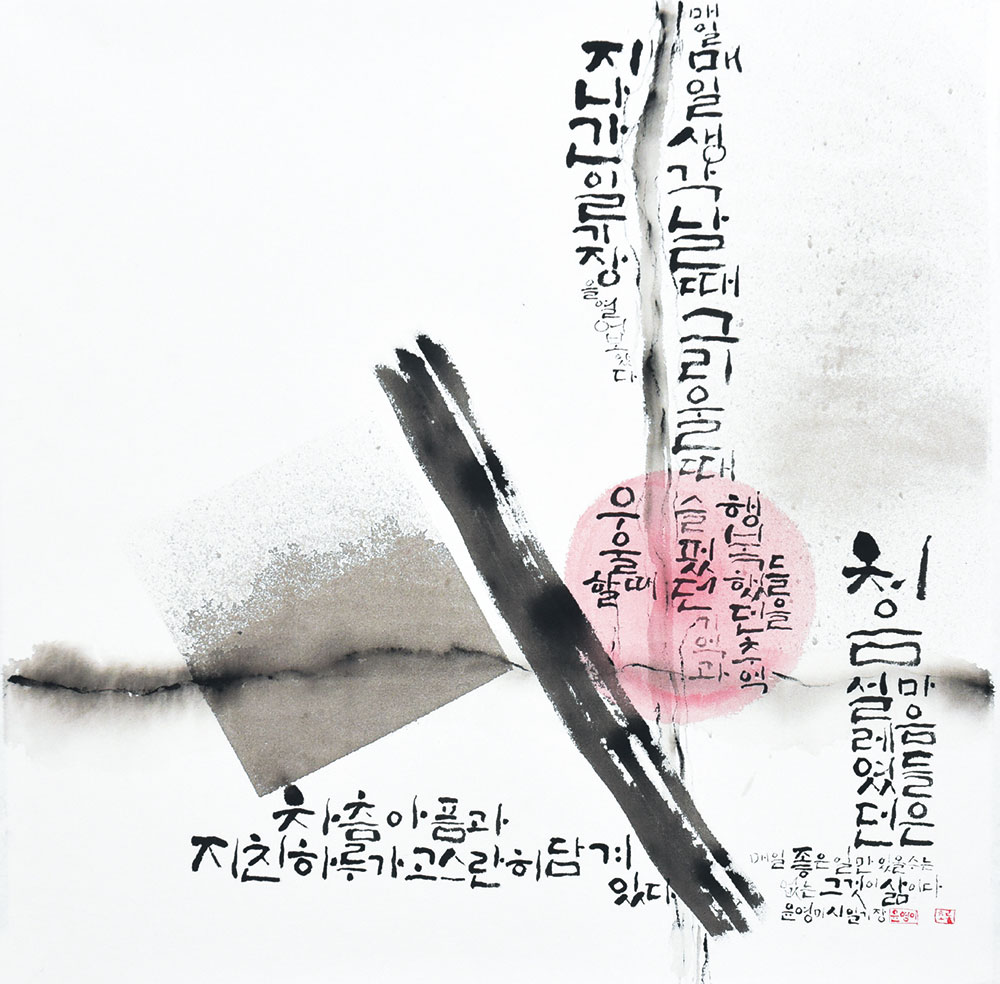 지나간 일기장을 열어보았다
매일매일 생각날때 그리울때
우울할때
슬펐던 기억과
행복했던 추억들을
처음 설레였던
마음들은
차츰 아픔과
지친 하루가 고스란히 담겨
있다
매일 좋은 일만 있을수는
없는 그것이 삶이다
윤영미 시 일기장 윤영미